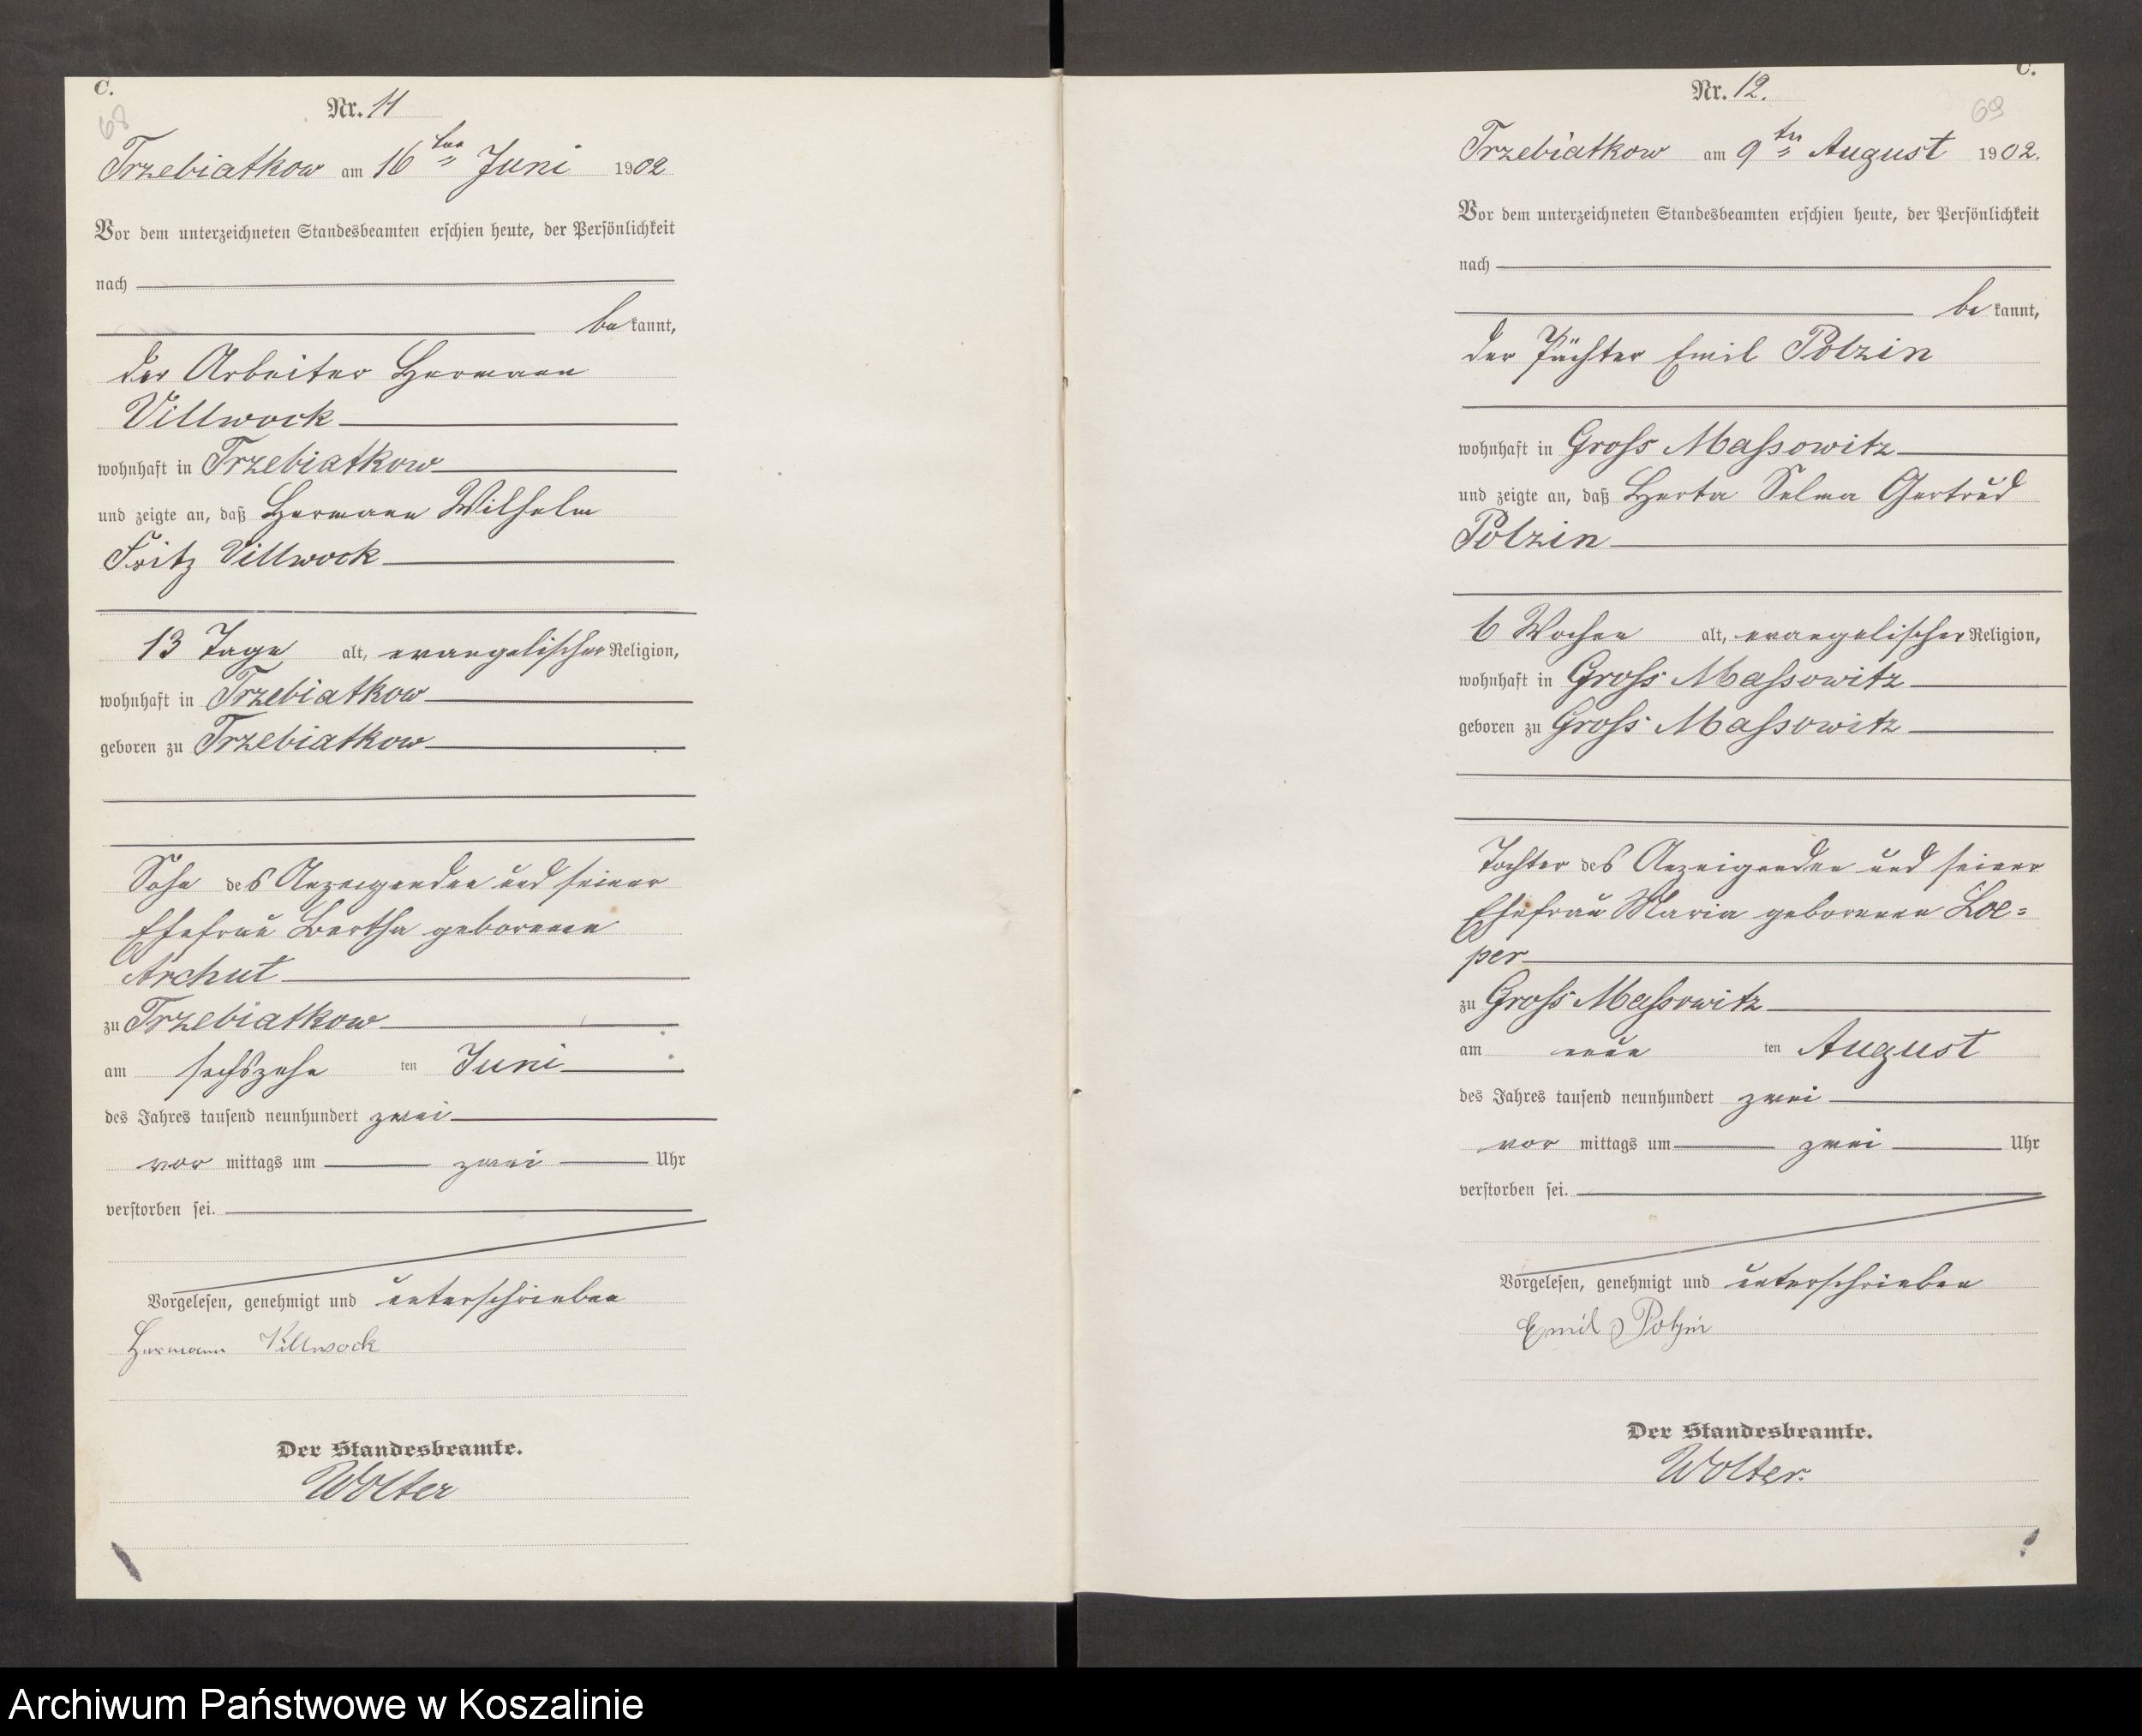 C.
68
Nr. 11
Trzebiatkow am 16ten Juni 1902
Vor dem unterzeichneten Standesbeamten erschien heute, der Persönlichkeit
nach
bekannt,
der Arbeiter Hermann
Villwock
wohnhaft in Trzebiatkow
und zeigte an, daß Hermann Wilhelm
Fritz Villwock
13 Tage alt, evangelischer Religion,
wohnhaft in Trzebiatkow
geboren zu Trzebiatkow
Sohn des Anzeigenden und seiner
Ehefrau Bertha geborenen
Archut
zu Trzebiatkow
am sechszehn ten Juni
des Jahres tausend neunhundert zwei
vor mittags um zwei Uhr
verstorben sei.
Vorgelesen, genehmigt und unterschrieben
Hermann Villwock
Der Standesbeamte.
Wolter
C.
69
Nr. 12.
Trzebiatkow am 9ten August 1902.
Vor dem unterzeichneten Standesbeamten erschien heute, der Persönlichkeit
nach
bekannt,
der Pächter Emil Polzin
wohnhaft in Gross Massowitz
und zeigte an, daß Herta Selma Gertrud
Polzin
6 Wochen alt, evangelischer Religion,
wohnhaft in Gross Massowitz
geboren zu Gross Massowitz
Tochter des Anzeigenden und seiner
Ehefrau Maria geborenen Loe=
per
zu Gross Massowitz
am neun ten August
des Jahres tausend neunhundert zwei
vor mittags um zwei Uhr
verstorben sei.
Vorgelesen, genehmigt und unterschrieben
Emil Polzin
Der Standesbeamte.
Wolter.
Archiwum Państwowe w Koszalinie